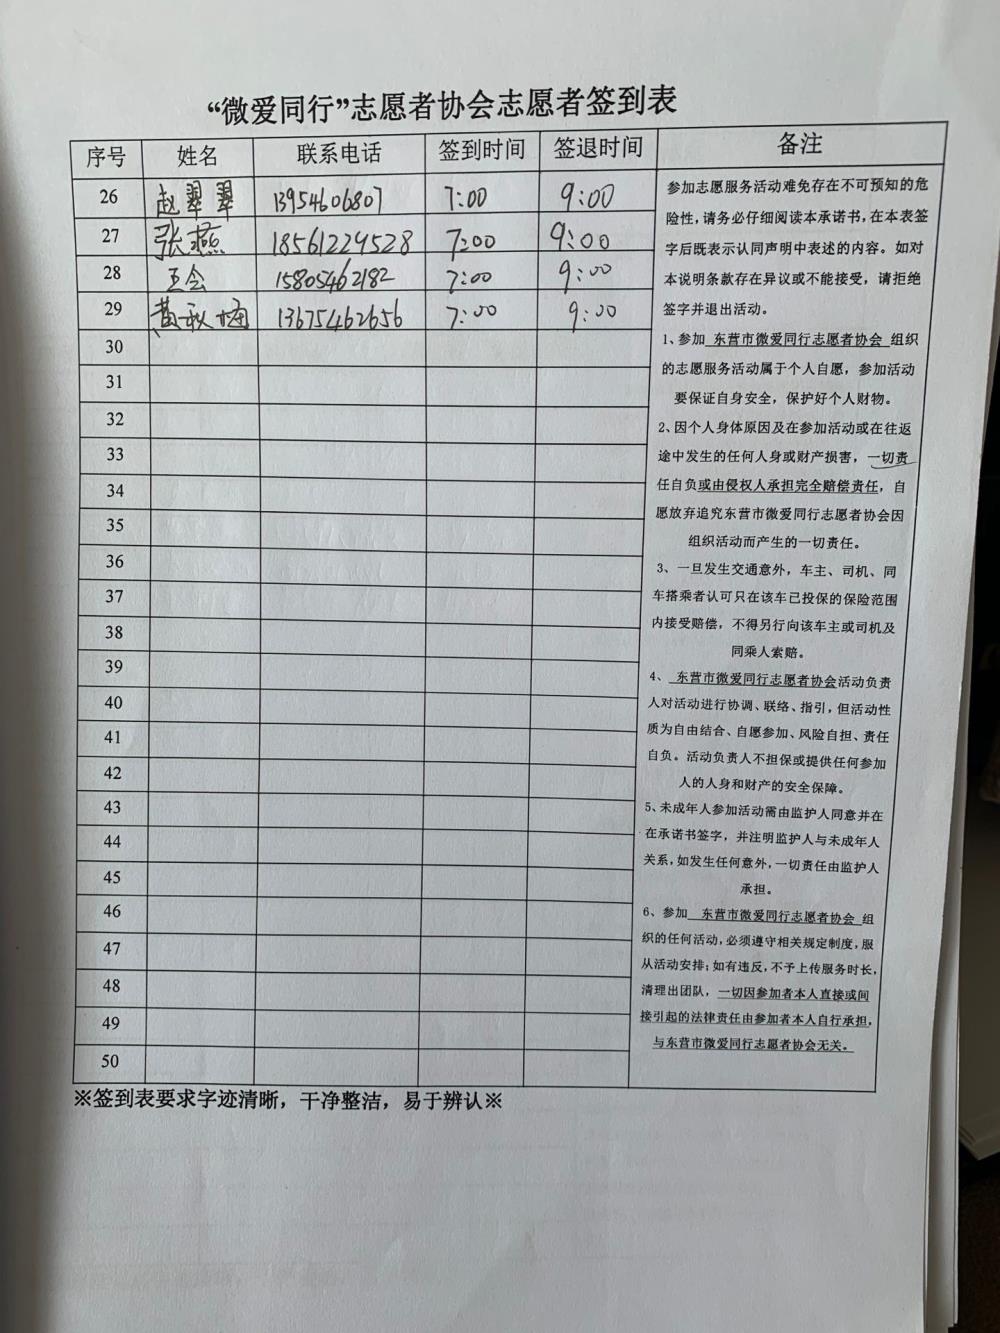 “微爱同行”志愿者协会志愿者签到表
序号 姓名 联系电话 签到时间 签退时间 备注
26 赵翠翠 13954606807 7:00 9:00
27 张燕 18561229528 7:00 9:00
28 王会 15805462182 7:00 9:00
29 黄秋梅 13675462656 7:00 9:00
30
31
32
33
34
35
36
37
38
39
40
41
42
43
44
45
46
47
48
49
50
参加志愿服务活动难免存在不可预知的危
险性,请务必仔细阅读本承诺书,在本表签
字后既表示认同声明中表述的内容。如对
本说明条款存在异议或不能接受,请拒绝
签字并退出活动。
1、参加 东营市微爱同行志愿者协会 组织
的志愿服务活动属于个人自愿,参加活动
要保证自身安全,保护好个人财物。
2、因个人身体原因及在参加活动或在往返
途中发生的任何人身或财产损害,一切责
任自负或由侵权人承担完全赔偿责任,自
愿放弃追究东营市微爱同行志愿者协会因
组织活动而产生的一切责任。
3、一旦发生交通意外,车主、司机、同
车搭乘者认可只在该车已投保的保险范围
内接受赔偿,不得另行向该车主或司机及
同乘人索赔。
4、 东营市微爱同行志愿者协会活动负责
人对活动进行协调、联络、指引,但活动性
质为自由结合、自愿参加、风险自担、责任
自负。活动负责人不担保或提供任何参加
人的人身和财产的安全保障。
5、未成年人参加活动需由监护人同意并在
在承诺书签字,并注明监护人与未成年人
关系,如发生任何意外,一切责任由监护人
承担。
6、参加 东营市微爱同行志愿者协会 组
织的任何活动,必须遵守相关规定制度,服
从活动安排;如有违反,不予上传服务时长,
清理出团队,一切因参加者本人直接或间
接引起的法律责任由参加者本人自行承担,
与东营市微爱同行志愿者协会无关。
※签到表要求字迹清晰,干净整洁,易于辨认※